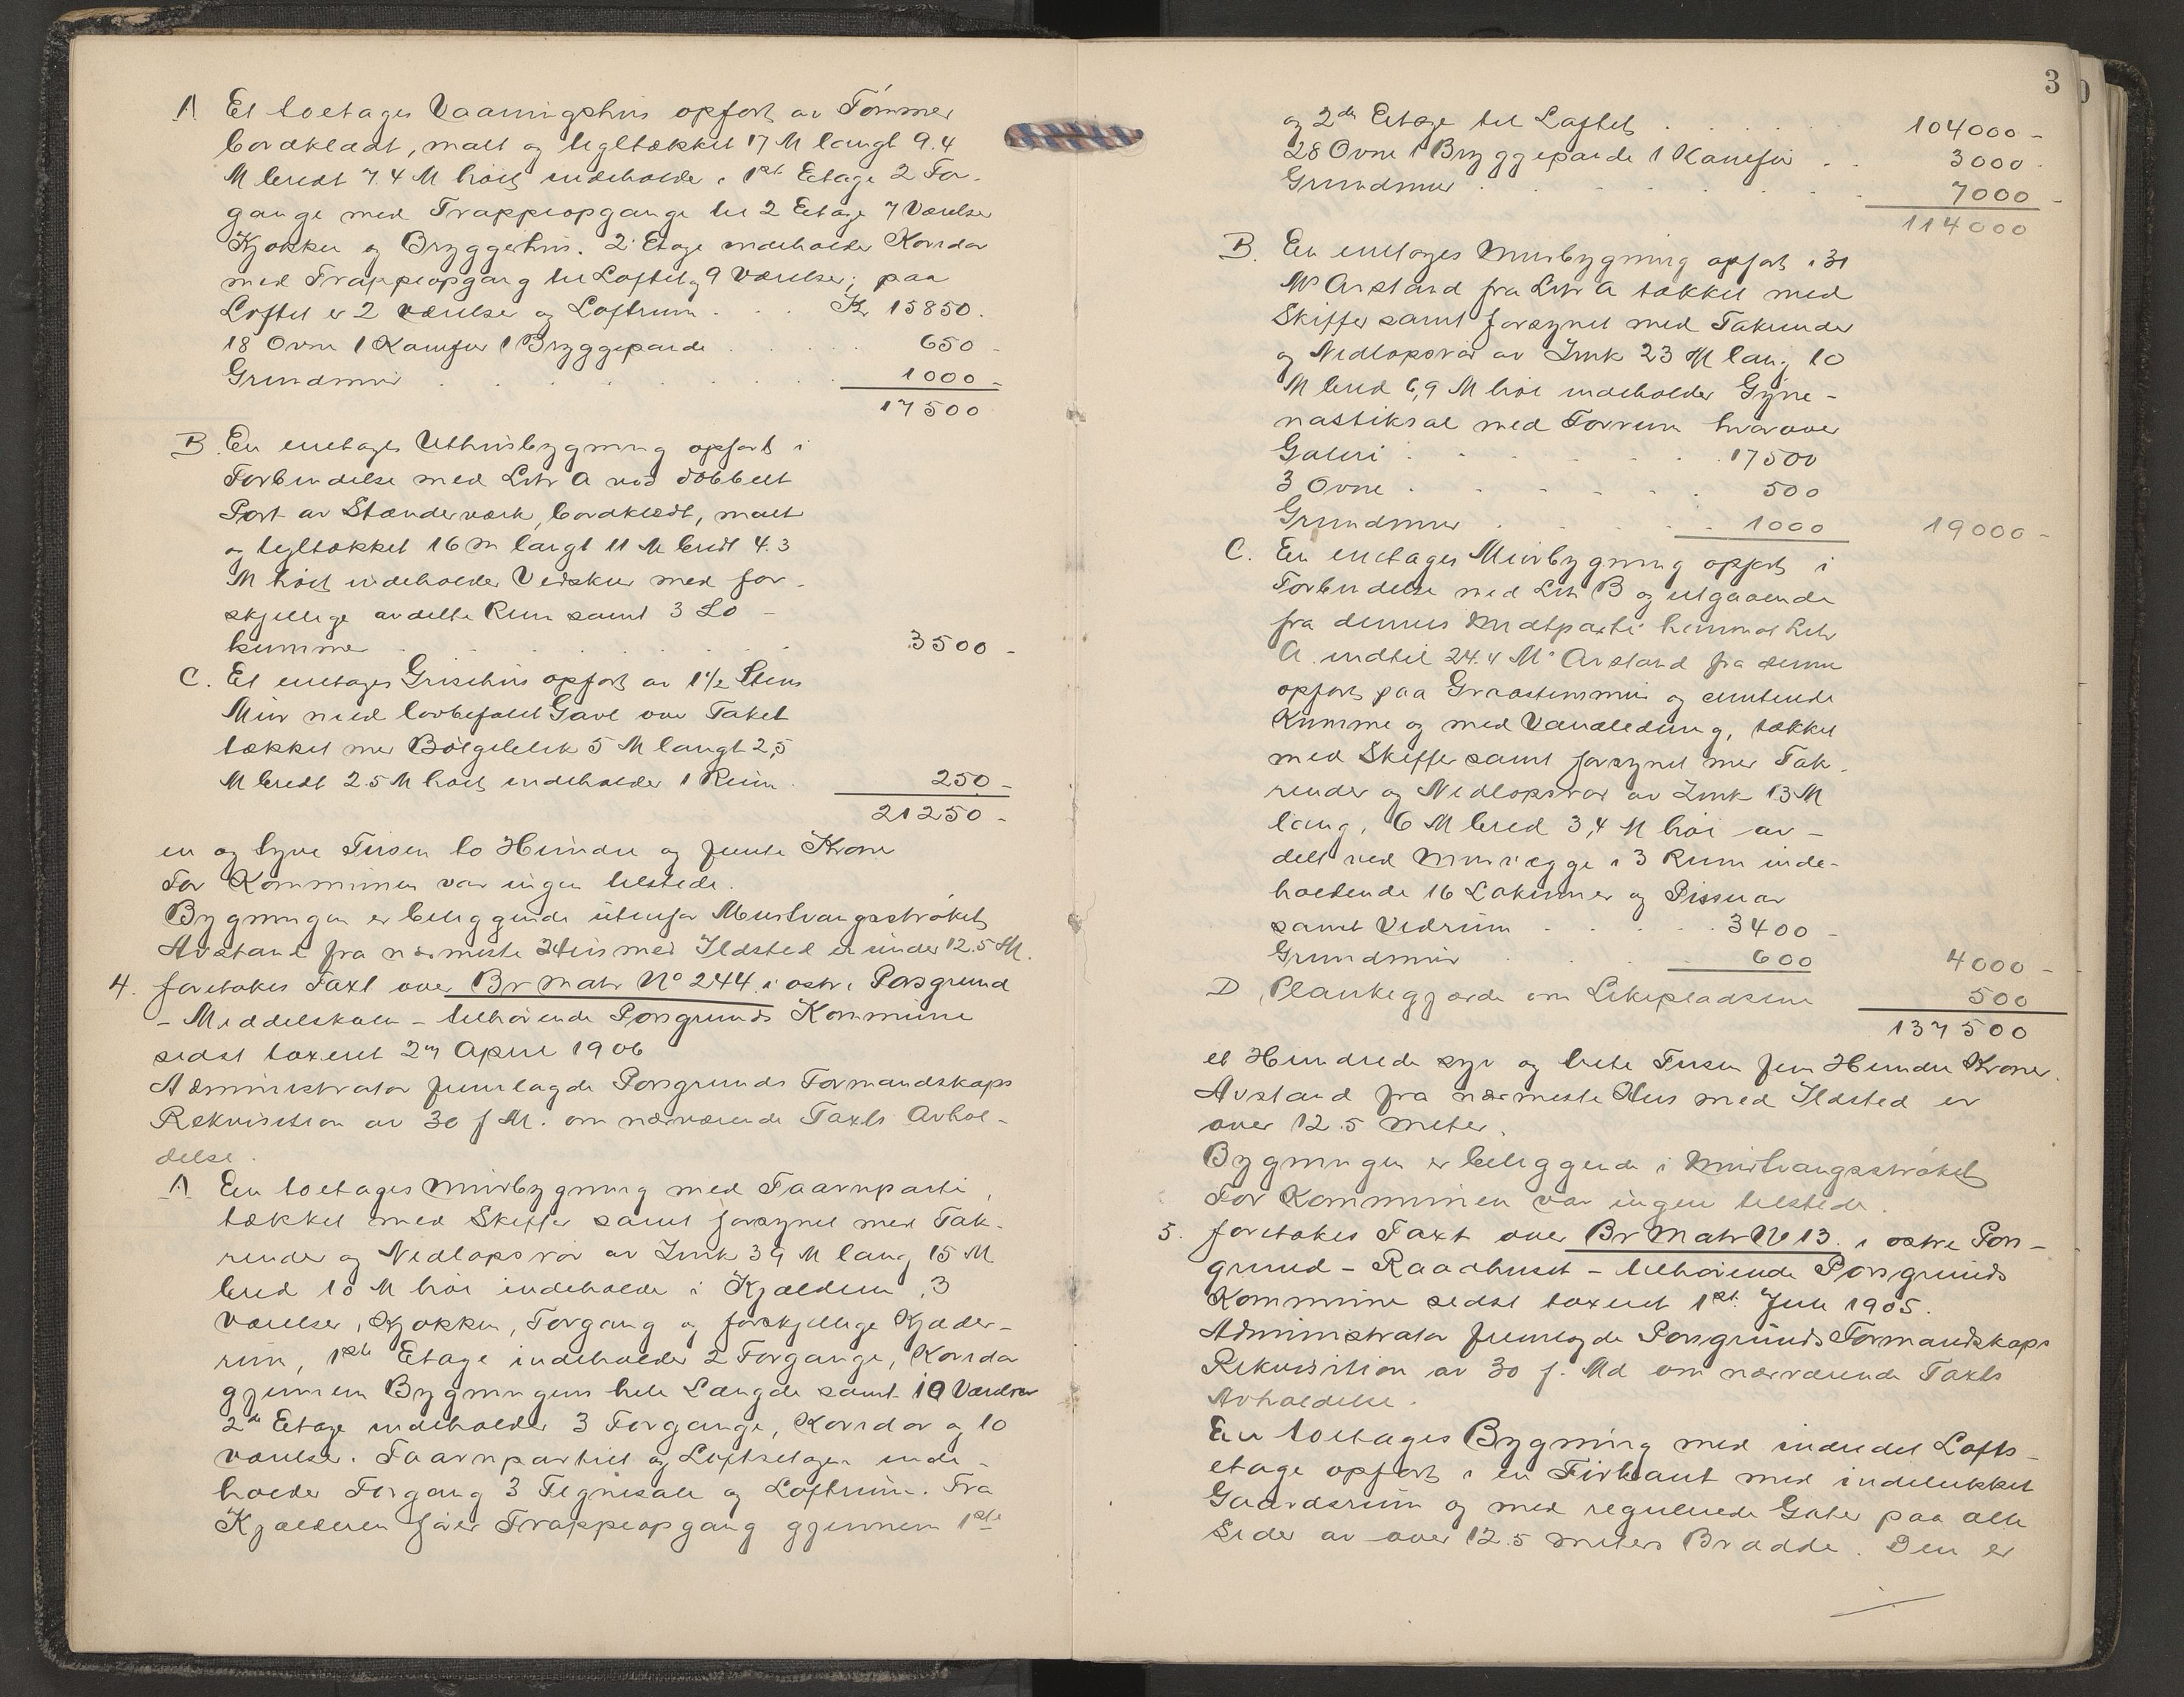 A Et toetages Vaaningshus opført av Tømmer
bordklædt, malt og tegltækket 17 M langt 9.4
M bredt 7.4 M høit indeholder i 1ste Etage 2 For-
gange med Trappeopgange til 2 Etage 7 Værelser
Kjøkken og Bryggerhus. 2 Etage indeholder Koridor
med Trappeopgang til Loftet og 9 Værelser; paa
Loftet er 2 værelser og Loftrum . . . Kr 15850.
18 Ovne 1 Komfur 1 Bryggepande . . . 650 -
Grundmur . . . 1000 -
17500
B. En enetages Uthusbygning opført i
Forbindelse med Litr A ved dobbelt
Port av Stænderværk, bordklædt, malt
og tegltækket 16 m langt 11 M bredt 4.3
M høit indeholder Vedskur med for-
skjellige avdelte Rum samt 3 Lo-
kummer . . . 3500 -
C. Et enetages Grisehus opført av 1 1/2 Stens
Mur med lovbefalet Gavl over Taket
tækket med Bølgeblik 5 M langt 2,5
M bredt 2.5 M høit indeholder 1 Rum . 250 -
21250 -
en og tyve Tusen to Hundre og femti Krone
For Kommunen var ingen tilstede.
Bygningen er beliggende utenfor Murtvangsstrøket
Avstand fra nærmeste Hus med Ildsted er under 12.5 M.
4. foretokes Taxt over Br Matr No 244 i østre Porsgrund
- Middelskolen - tilhørende Porsgrunds Kommune
sidst taxeret 2 April 1906
Administrator fremlagde Porsgrunds Formandskaps
Rekvisition av 30 f M. om nærværende Taxts Avhol-
delse.
A En toetages Murbygning med Taarnparti,
tækket med Skiffer samt forsynet med Tak-
render og Nedløpsrør av Zink 39 M lang 15 M
bred 10 M høi indeholder i Kjælderen, 3
værelser, Kjøkken, Forgang og forskjellige Kjælder-
rum, 1ste Etage indeholder 2 Forgange, Koridor
gjennem Bygningens hele Længde samt 10 Værelser
2de Etage indeholder 3 Forgange, Koridor og 10
værelser. Taarnpartiet og Loftsetagen inde-
holder Forgang 3 Tegnesale og Loftrum. Fra
Kjælderen fører Trappeopgang gjennem 1ste
3
og 2den Etage til Loftet . . . 104000 -
28 Ovne 1 Bryggepande 1 Komfur . . 3000 -
Grundmur . . . 7000 -
114000
B. En enetages Murbygning opført i 31
M's Avstand fra Litr A tækket med
Skiffer samt forsynet med Takrender
og Nedløpsrør av Zink 23 M lang 10
M bred 6,9 M høi indeholder Gym-
nastiksal med Forrum hvorover
Galleri . . . 17500
3 Ovne . . . 500
Grundmur . . . 1000 19000 -
C. En enetages Murbygning opført i
Forbindelse med Litr B og utgaaende
fra dennes Midtparti henimot Litr
A indtil 24.4 M's Avstand fra denne
opført paa Graastensmur og cementerede
Kumme og med Vandledning, tækket
med Skiffer samt forsynet med Tak-
render og Nedløpsrør av Zink 13 M
lang, 6 M bred 3,4 M høi av-
delt ved Murvægge i 3 Rum inde-
holdende 16 Lokumer og Pissoar
samt Vedrum . . . 3400 -
Grundmur . . . 600 4000 -
D Plankegjærde om Lekepladsene 500
137500
et Hundrede syv og trete Tusen fem Hundre Kroner.
Avstand fra nærmeste Hus med Ildsted er
over 12.5 meter.
Bygningen er beliggende i Murtvangsstrøket
For Kommunen var ingen tilstede.
5. foretokes Taxt over Br Matr No 13. i østre Pors-
grund - Raadhuset - tilhørende Porsgrunds
Kommune sidst taxeret 1ste Juli 1905.
Administrator fremlagde Porsgrunds Formandskaps
Rekvisition av 30 f. Md om nærværende Taxts
Avholdelse.
En toetages Bygning med indredet Lofts-
etage opført i en Firkant med indelukket
Gaardsrum og med regulerede Gater paa alle
Sider av over 12.5 meters Bredde. Den er